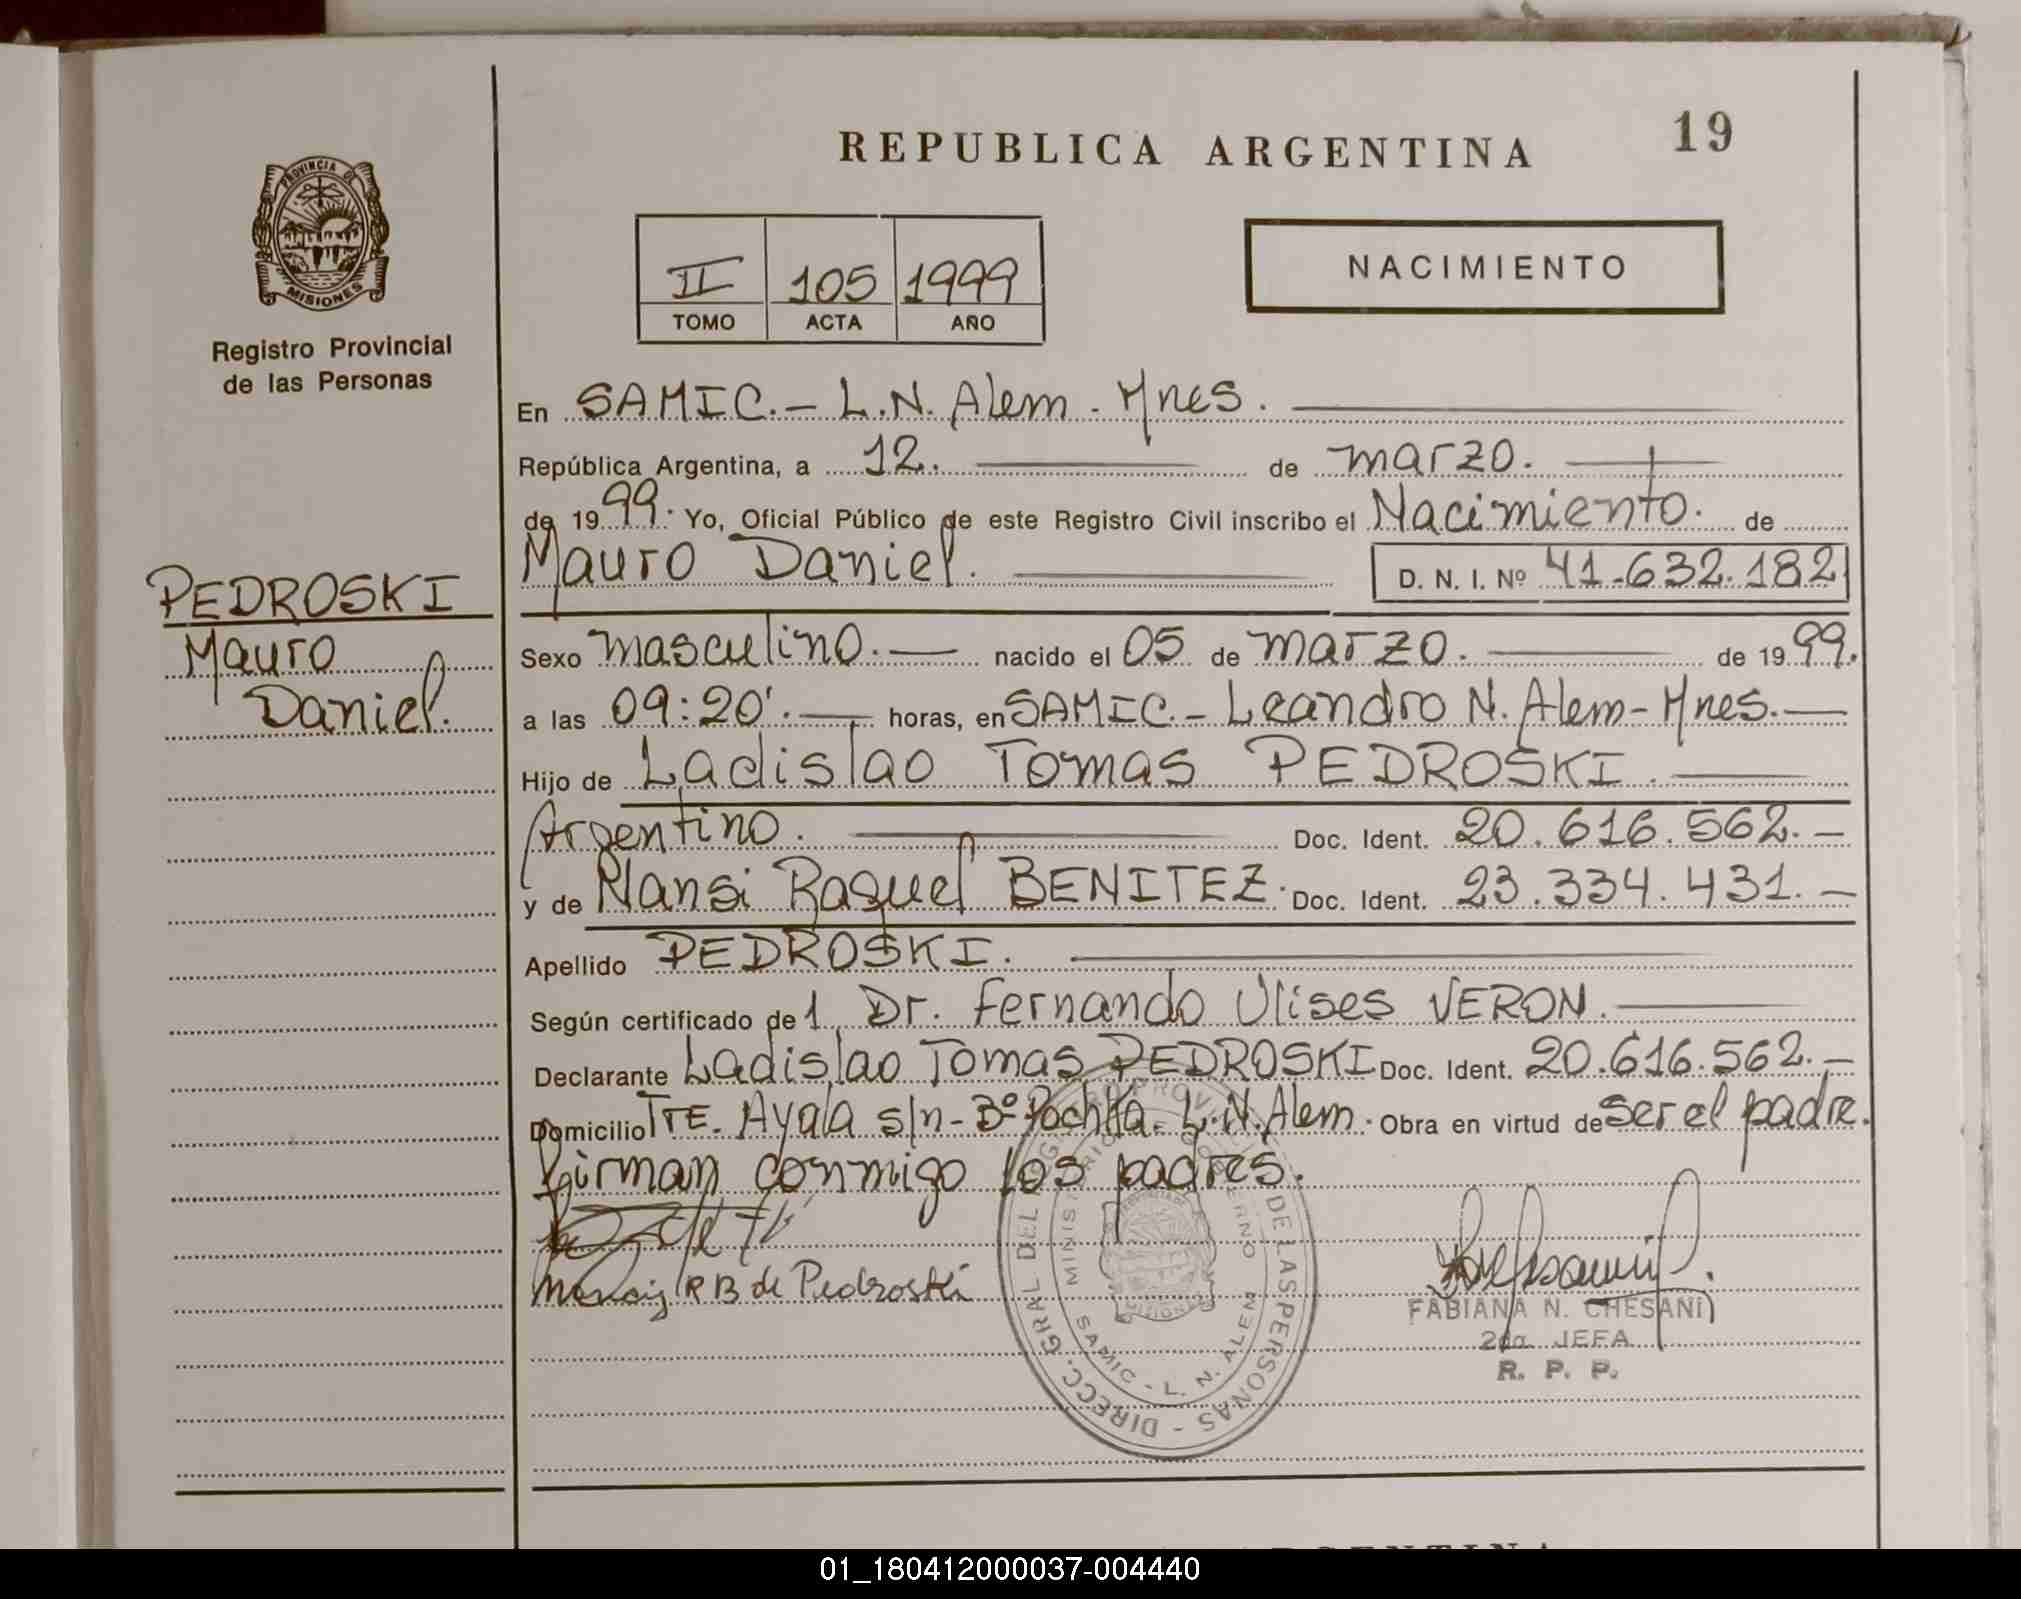 REPUBLICA ARGENTINA
19
PROVINCIA DE
MISIONES
Registro Provincial
de las Personas
II 105 1999
TOMO ACTA AÑO
NACIMIENTO
En SAMIC.- L.N. Alem - Mnes.
República Argentina, a 12. de marzo.
de 1999. Yo, Oficial Público de este Registro Civil inscribo el Nacimiento. de
Mauro Daniel. D. N. I. Nº 41.632.182
PEDROSKI
Mauro
Daniel.
Sexo masculino. nacido el 05 de marzo. de 1999.
a las 09:20'. horas, en SAMIC.- Leandro N. Alem - Mnes.
Hijo de Ladislao Tomas PEDROSKI.
Argentino. Doc. Ident. 20.616.562.
y de Nansi Raquel BENITEZ. Doc. Ident. 23.334.431.
Apellido PEDROSKI.
Según certificado de 1 Dr. Fernando Ulises VERON.
Declarante Ladislao Tomas PEDROSKI Doc. Ident. 20.616.562.
Domicilio TTE. Ayala s/n - Bº L.N. Alem. Obra en virtud de ser el padre.
Firman conmigo los padres.
R B de Pedroski
DIRECC. GRAL DEL REGISTRO PROVINCIAL DE LAS PERSONAS
MINISTERIO DE GOBIERNO
SAMIC - L. N. ALEM
MISIONES
FABIANA N. CHESANI
2da. JEFA
R. P. P.
01_180412000037-004440